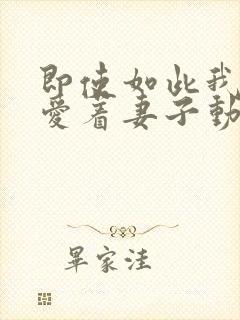 即使如此我
愛着妻子動
畢家洼